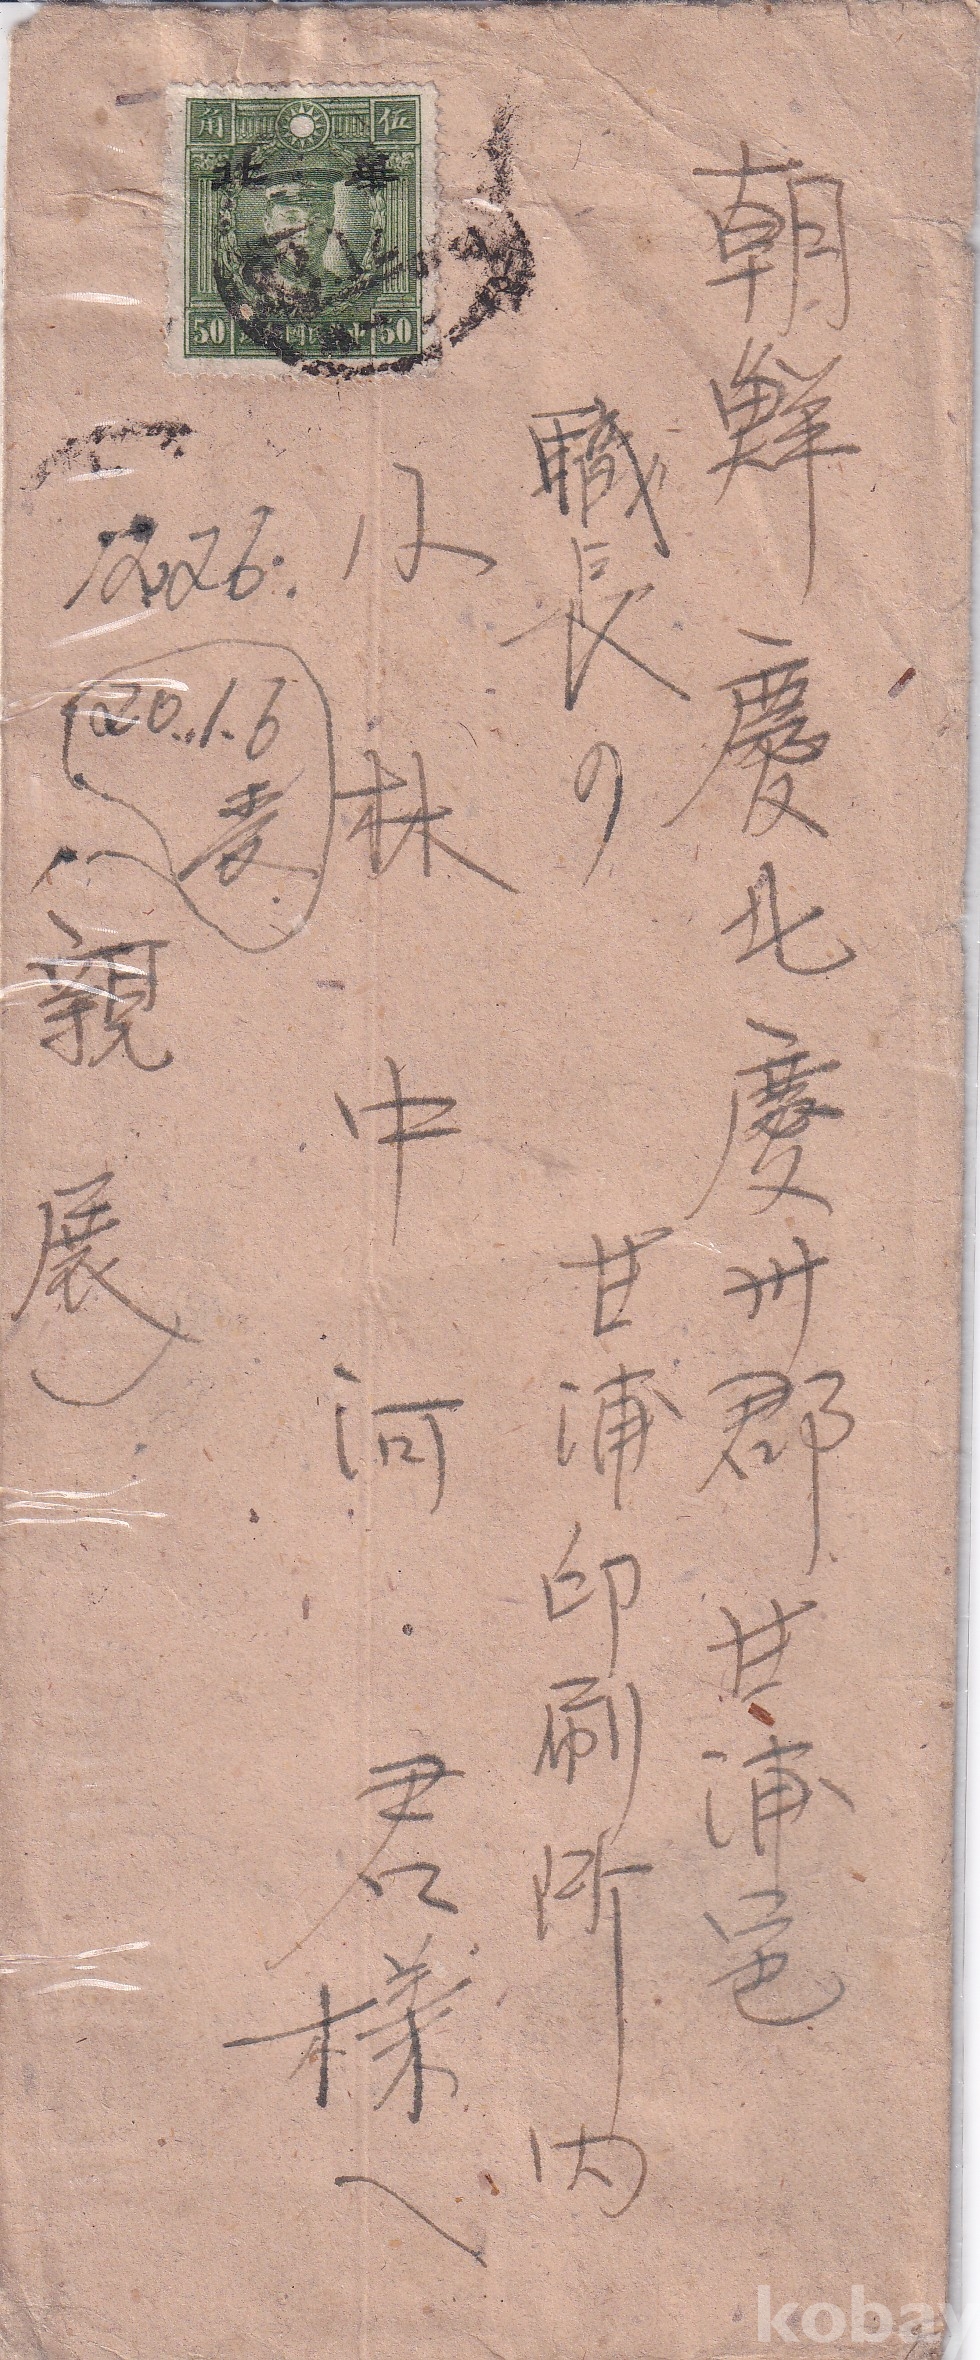 朝鮮慶北慶州郡甘浦邑
甘浦印刷所内
職長の
林中河君様へ
12.26.
20.1.6
受
親展
伍 角
華北
50 50
kobay